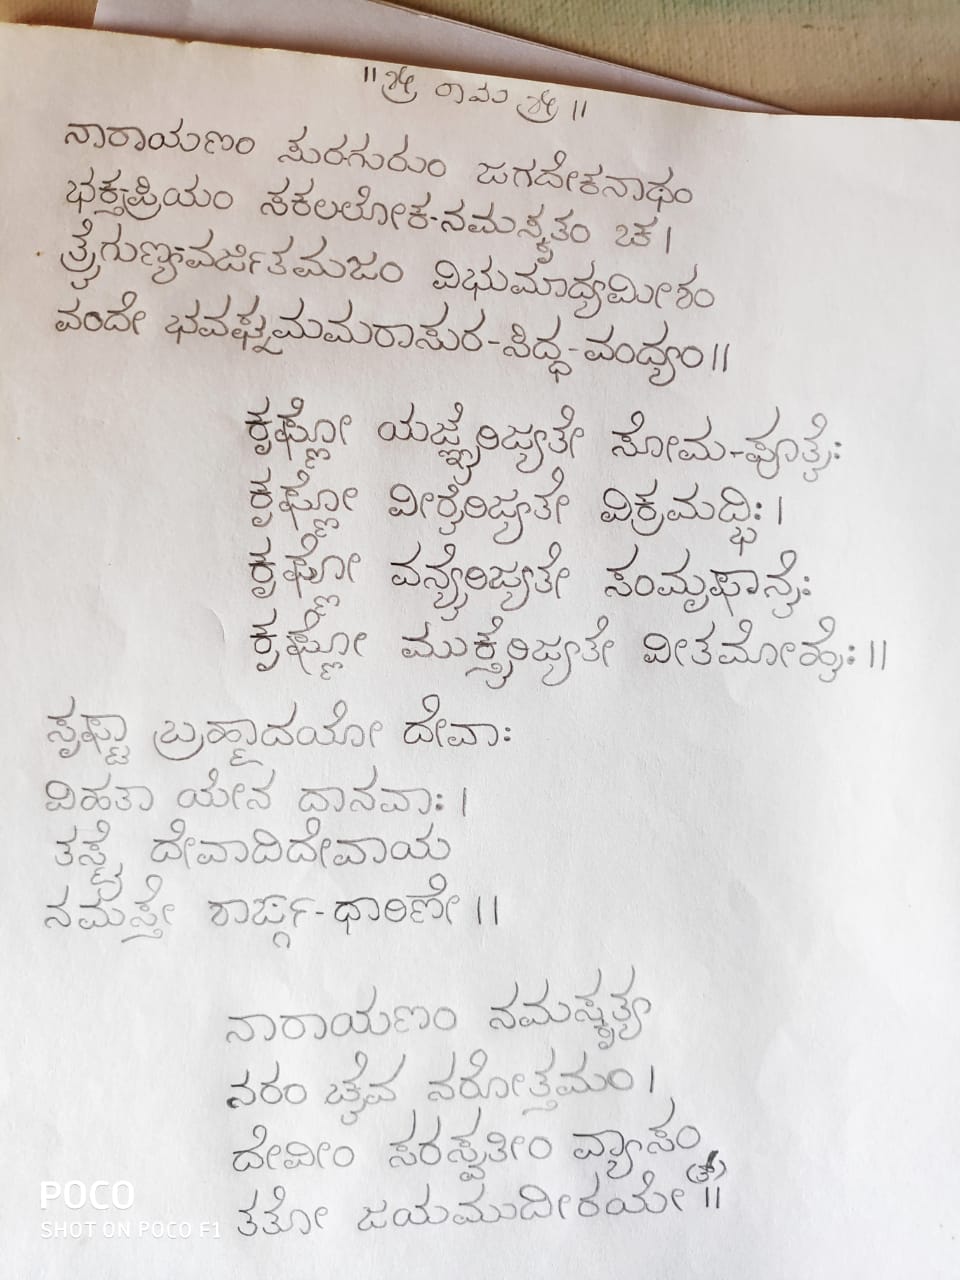 ॥ ಶ್ರೀ ರಾಮ ಶ್ರೀ ॥
ನಾರಾಯಣಂ ಸುರಗುರುಂ ಜಗದೇಕನಾಥಂ
ಭಕ್ತಪ್ರಿಯಂ ಸಕಲಲೋಕ-ನಮಸ್ಕೃತಂ ಚ ।
ತ್ರೈಗುಣ್ಯವರ್ಜಿತಮಜಂ ವಿಭುಮಾದ್ಯಮೀಶಂ
ವಂದೇ ಭವಘ್ನಮಮರಾಸುರ-ಸಿದ್ಧ-ವಂದ್ಯಂ ॥
ಕೃಷ್ಣೋ ಯಜ್ಞೈರಿಜ್ಯತೇ ಸೋಮ-ಪೂತೈಃ
ಕೃಷ್ಣೋ ವೀರೈರಿಜ್ಯತೇ ವಿಕ್ರಮದ್ಭಿಃ ।
ಕೃಷ್ಣೋ ವನ್ಯೈರಿಜ್ಯತೇ ಸಂಮೃಷಾನೈಃ
ಕೃಷ್ಣೋ ಮುಕ್ತೈರಿಜ್ಯತೇ ವೀತಮೋಹೈಃ ॥
ಸೃಷ್ಟಾ ಬ್ರಹ್ಮಾದಯೋ ದೇವಾಃ
ವಿಹತಾ ಯೇನ ದಾನವಾಃ ।
ತಸ್ಮೈ ದೇವಾದಿದೇವಾಯ
ನಮಸ್ತೇ ಶಾರ್ಙ್ಗ-ಧಾರಿಣೇ ॥
ನಾರಾಯಣಂ ನಮಸ್ಕೃತ್ಯ
ನರಂ ಚೈವ ನರೋತ್ತಮಂ ।
ದೇವೀಂ ಸರಸ್ವತೀಂ ವ್ಯಾಸಂ
ತತೋ ಜಯಮುದೀರಯೇ (ತ್) ॥
POCO
SHOT ON POCO F1